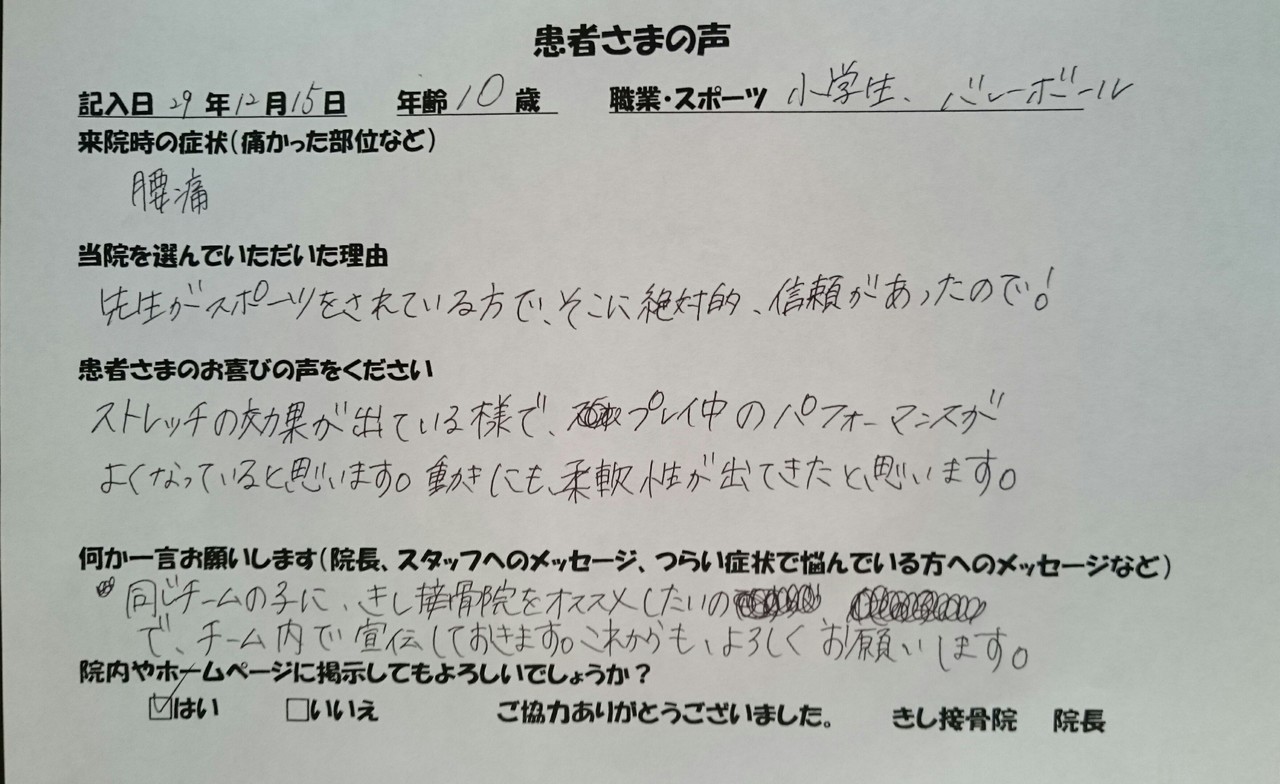 患者さまの声
記入日 29 年 12 月 15 日 年齢 10 歳 職業・スポーツ 小学生、バレーボール
来院時の症状（痛かった部位など）
腰痛
当院を選んでいただいた理由
先生がスポーツをされている方で、そこに絶対的、信頼があったので！
患者さまのお喜びの声をください
ストレッチの効果が出ている様で、プレイ中のパフォーマンスが
よくなっていると思います。動きにも、柔軟性が出てきたと思います。
何か一言お願いします（院長、スタッフへのメッセージ、つらい症状で悩んでいる方へのメッセージなど）
同じチームの子に、きし接骨院をオススメしたいの
で、チーム内で宣伝しておきます。これからも、よろしくお願いします。
院内やホームページに掲示してもよろしいでしょうか？
☑はい □いいえ ご協力ありがとうございました。 きし接骨院 院長